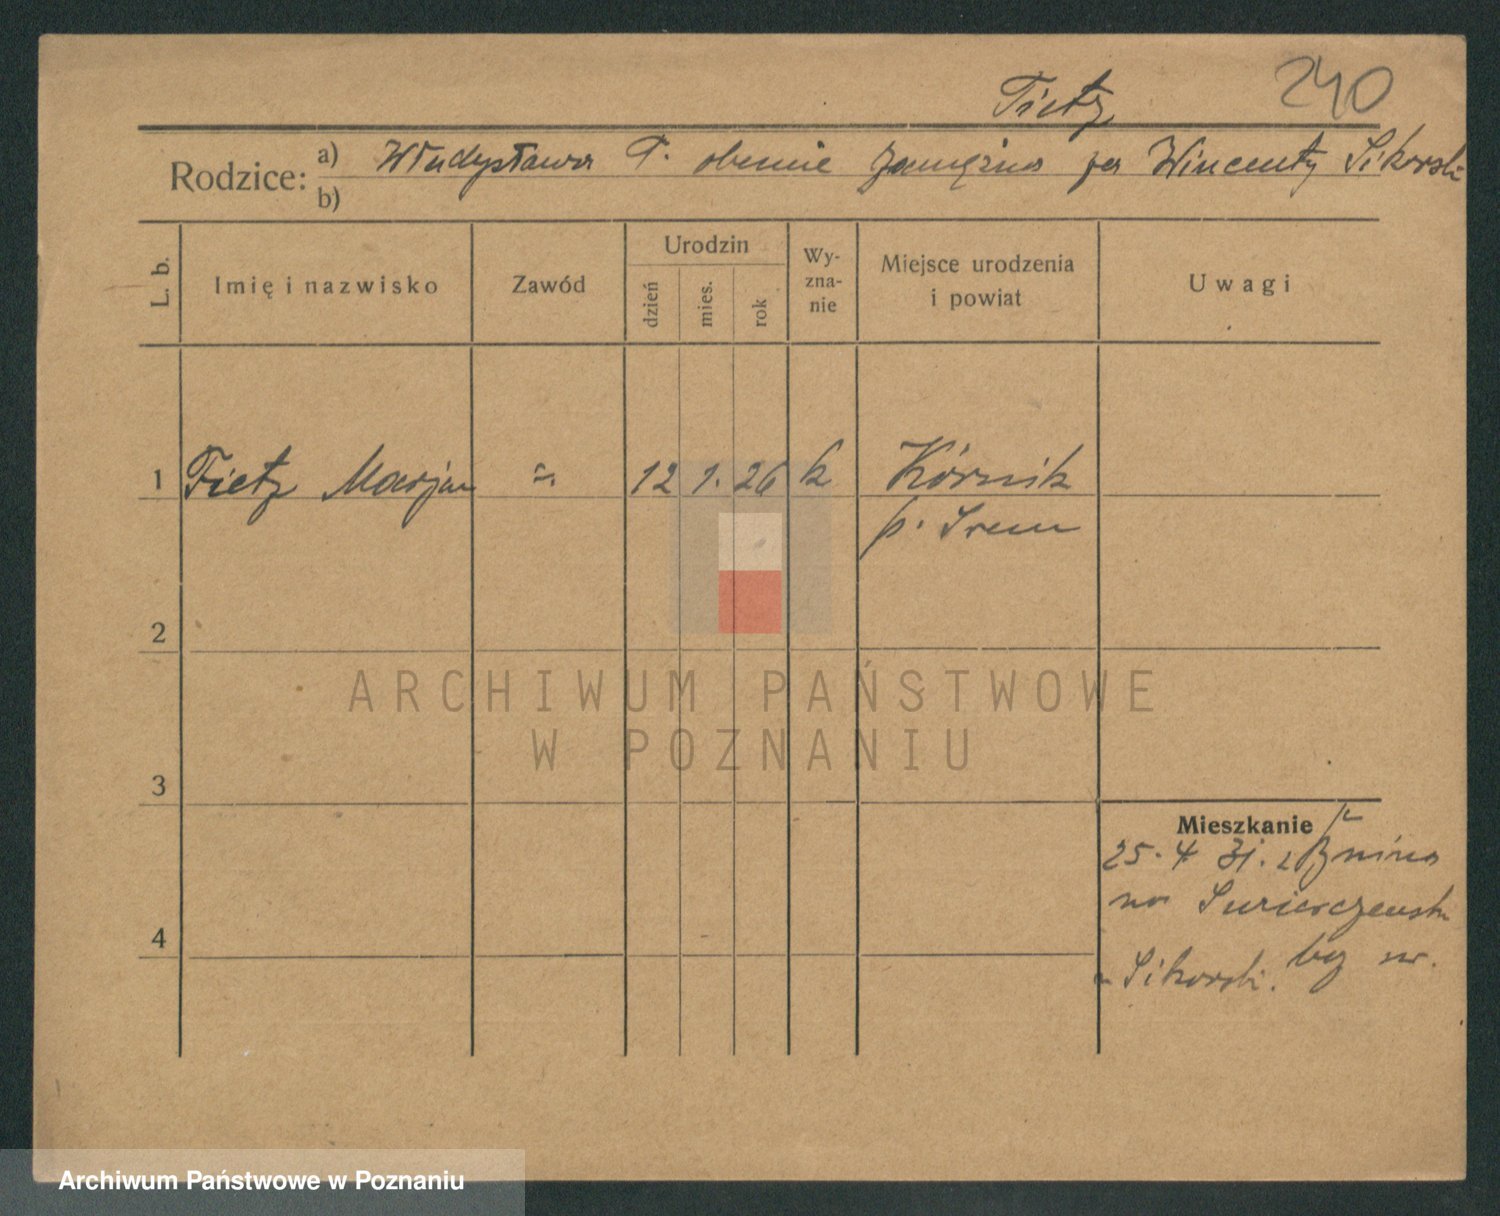 240
Tietz
Rodzice: a) Władysława T. obecnie zamężna za Wincenty Sikorski
b)
L. b.
Imię i nazwisko
Zawód
Urodzin
dzień
mies.
rok
Wy-
zna-
nie
Miejsce urodzenia
i powiat
Uwagi
1 Tietz Marjan 12 1. 26 k Kórnik
p. Śrem
2
ARCHIWUM PAŃSTWOWE
W POZNANIU
3
Mieszkanie
25. 4 31. z Bnina
na
4
Sikorski.
Archiwum Państwowe w Poznaniu